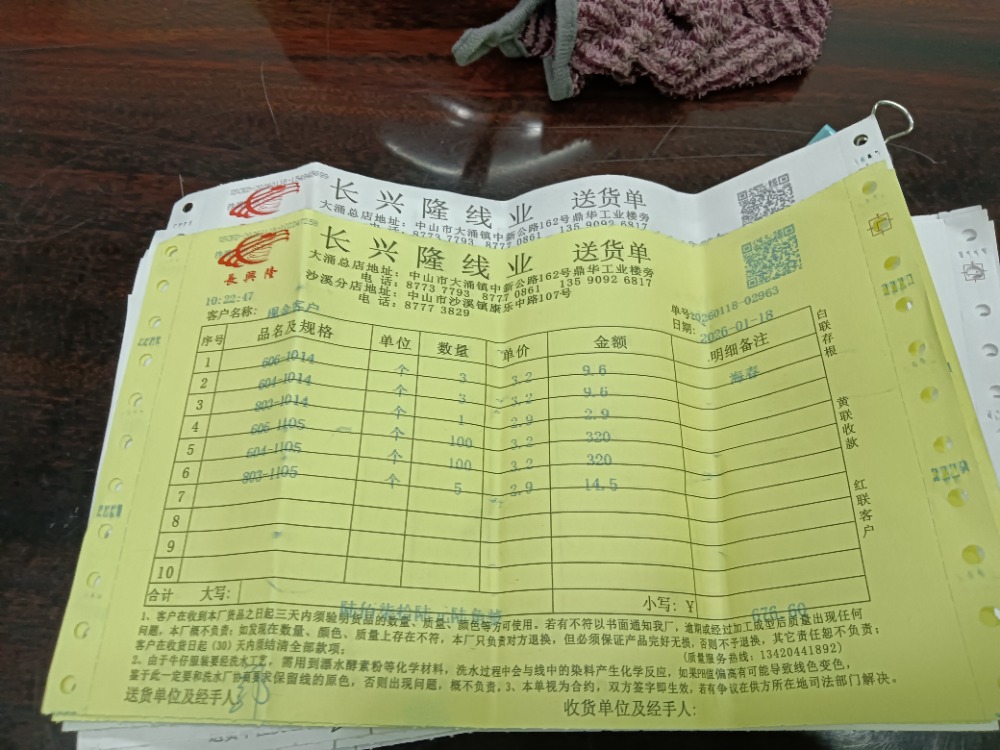 长兴隆线业 送货单
大涌总店地址：中山市大涌镇中新公路162号鼎华工业楼旁
長興隆
长兴隆线业 送货单
大涌总店地址：中山市大涌镇中新公路162号鼎华工业楼旁
电话：8773 7793 8777 0861 135 9092 6817
沙溪分店地址：中山市沙溪镇康乐中路107号
电话：8777 3829
10:22:47
客户名称：现金客户
单号20260118-02963
日期：2026-01-18
序号 品名及规格 单位 数量 单价 金额 明细备注
1 606-1014 个 3 3.2 9.6 海春
2 604-1014 个 3 3.2 9.6
3 803-1014 个 1 2.9 2.9
4 606-1105 个 100 3.2 320
5 604-1105 个 100 3.2 320
6 803-1105 个 5 2.9 14.5
7
8
9
10
合计 大写：陆佰柒拾陆元陆角整 小写：￥ 676.60
白联存根
黄联收款
红联客户
1、客户在收到本厂货品之日起三天内须验明货品的数量、质量、颜色等方可使用。若有不符以书面通知我厂，逾期或经过加工成型后质量出现任何
问题，本厂概不负责；如发现在数量、颜色、质量上存在不符，本厂只负责对方退换，但必须保证产品完好无损，否则不予退换，其它责任恕不负责；
客户在收货日起（30）天内须结清全部款项；
（质量服务热线：13420441892）
2、由于牛仔服装要经洗水工艺，需用到漂水酵素粉等化学材料，洗水过程中会与线中的染料产生化学反应，如果PH值偏高有可能导致线色变色，
鉴于此一定要和洗水厂协商要求保留线的原色，否则出现问题，概不负责。3、本单视为合约，双方签字即生效，若有争议在供方所在地司法部门解决。
送货单位及经手人：
收货单位及经手人：